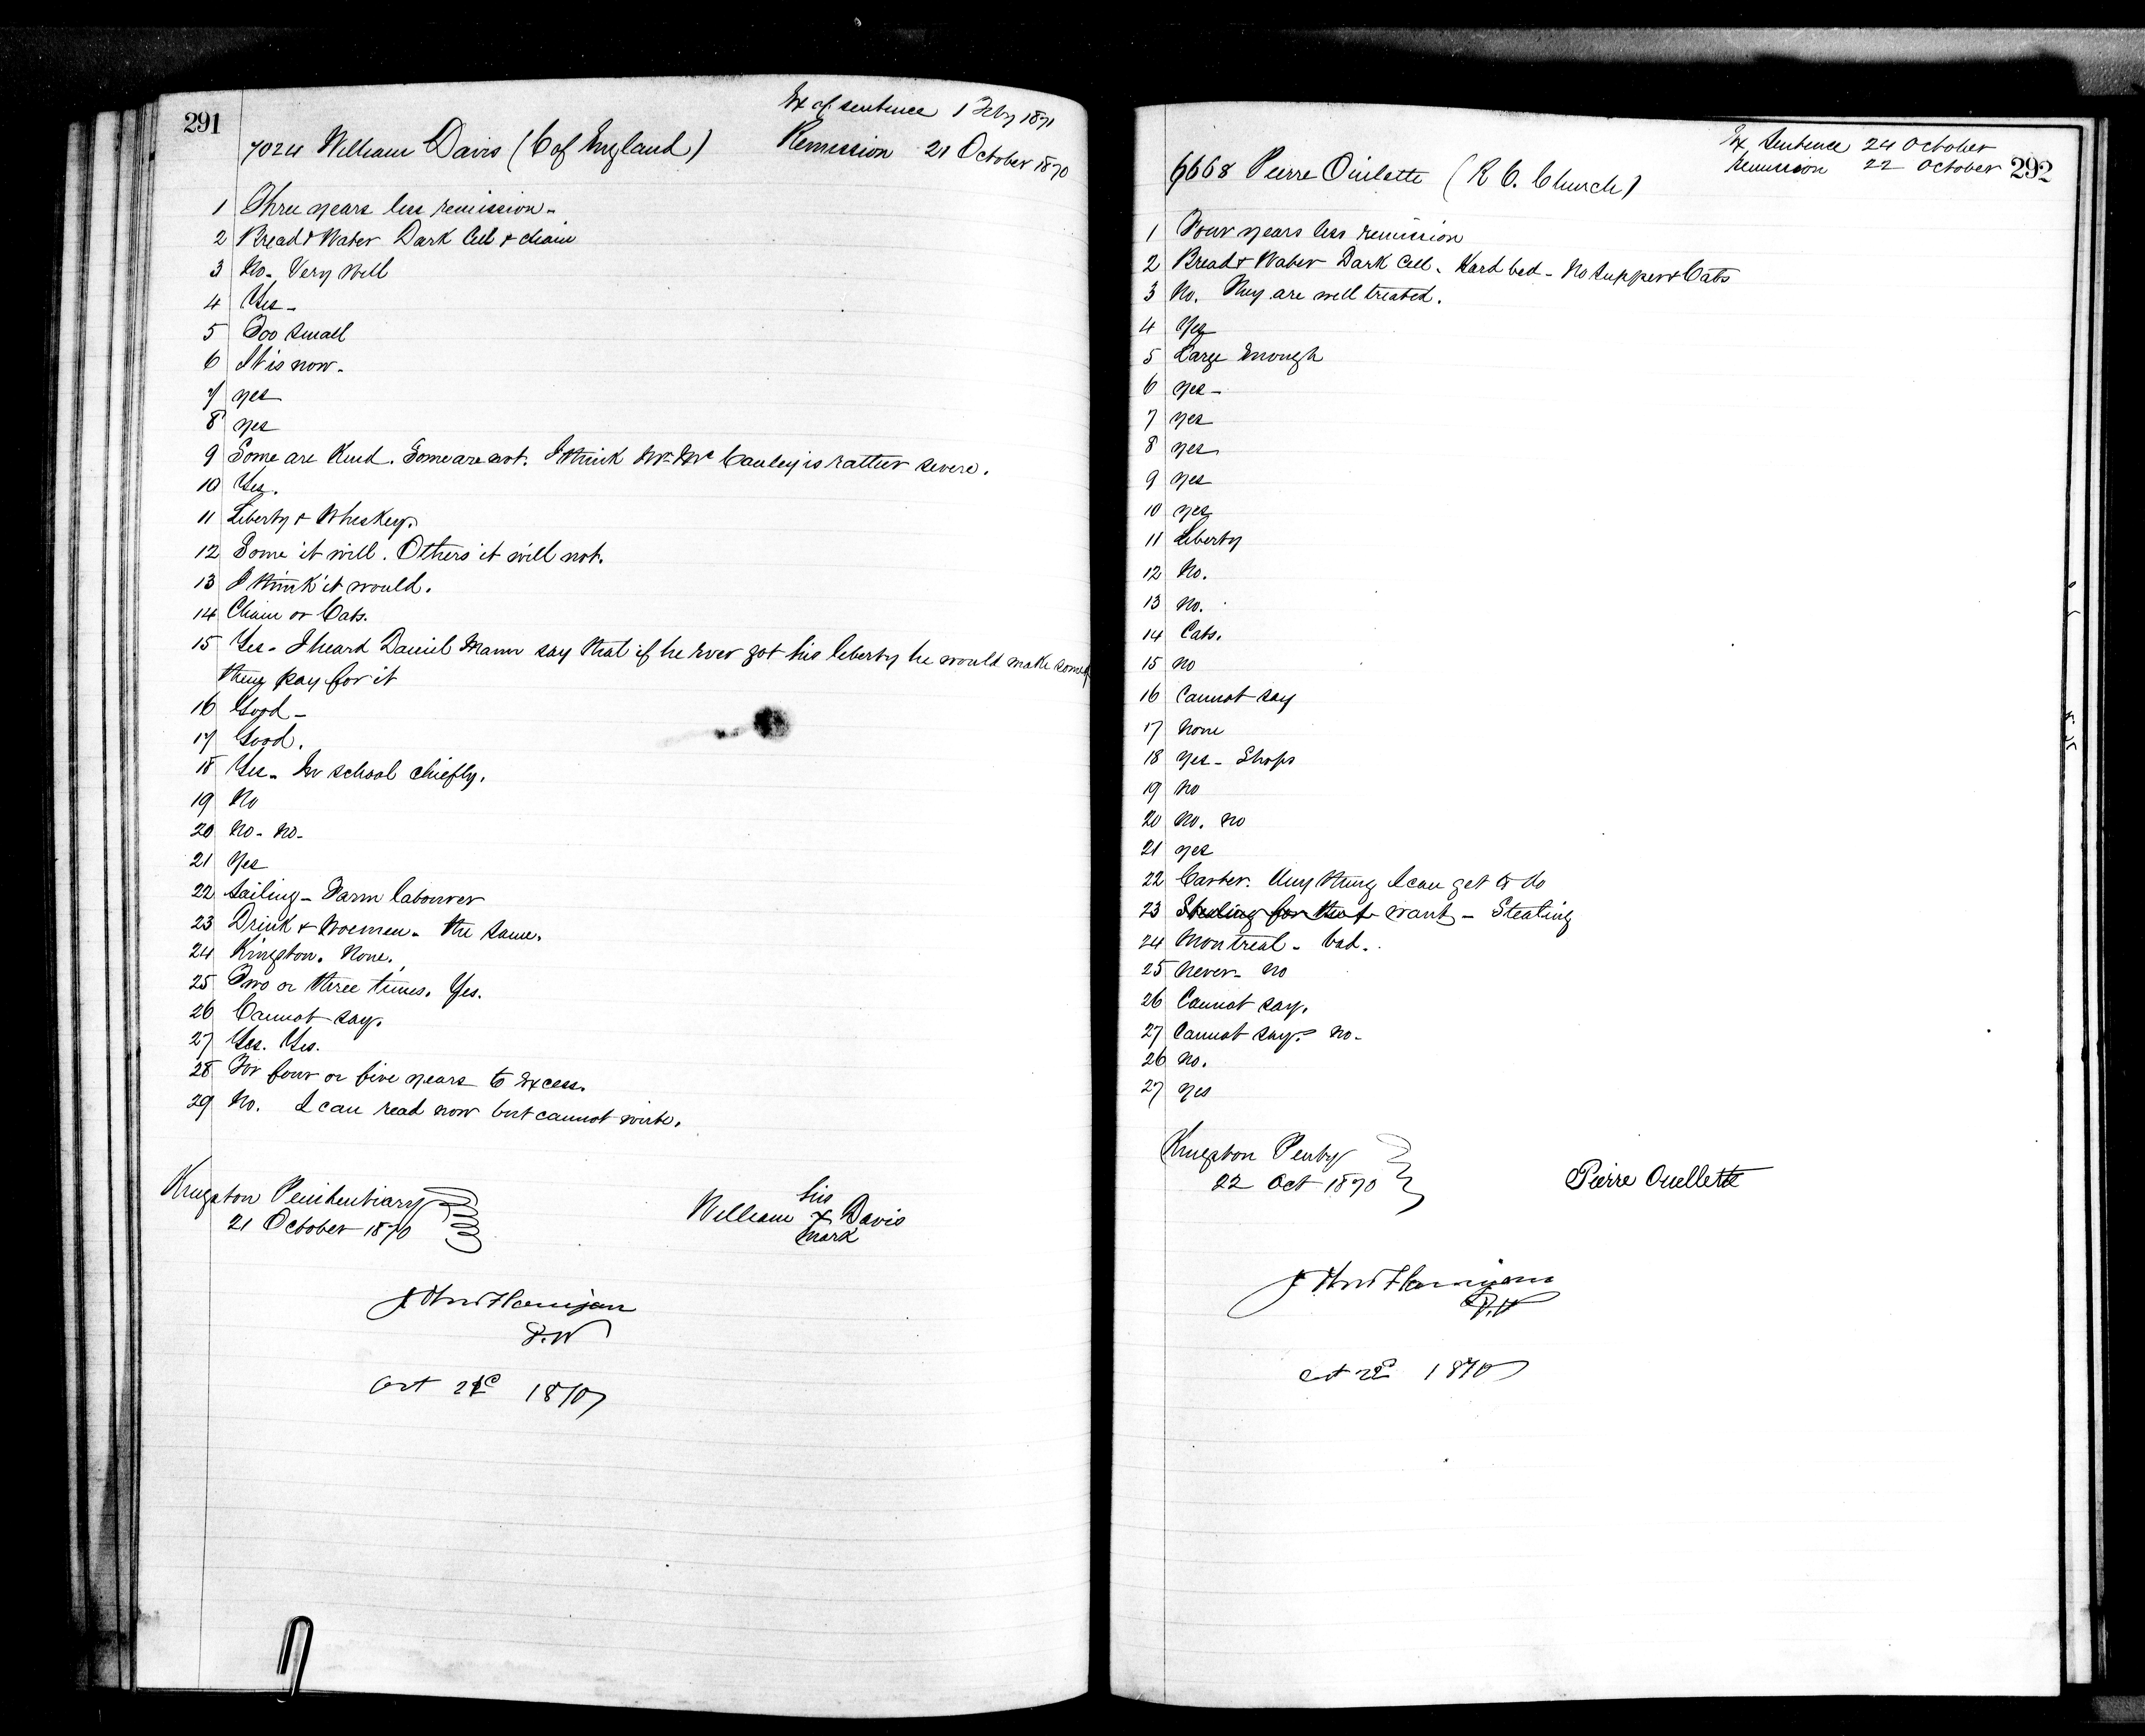 291
Ex of sentence 1 Feby 1871
7024 William Davis (C of England) Remission 21 October 1870
1 Three years less remission -
2 Bread & Water Dark Cell & chain
3 No - Very Well
4 Yes -
5 Too small
6 It is now -
7 yes
8 yes
9 Some are Kind. Some are not. I think Mr Mc Cauley is rather severe.
10 Yes.
11 Liberty & Whiskey.
12 Some it will. Others it will not.
13 I think it would.
14 Chain or Cats.
15 Yes - I heard Daniel Mann say that if he Ever got his liberty he would make some
thing pay for it
16 Good -
17 Good.
18 Yes - In school chiefly.
19 No
20 No - No -
21 Yes
22 Sailing - Farm labourer
23 Drink & Woemen - the same.
24 Kingston. None.
25 Two or three times. Yes.
26 Cannot say.
27 Yes. Yes.
28 For four or five years to Excess.
29 No. I can read now but cannot write.
Kingston Penitentiary
21 October 1870
his
William X Davis
mark
D.W
Oct 1870
Ex Sentence 24 October
Remission 22 October 292
6668 Pierre Ouilette (R C. Church)
1 Four years less remission
2 Bread & Water Dark Cell - Hard bed - No Supper & Cats
3 No. They are well treated.
4 Yes
5 Large Enough
6 yes -
7 yes
8 yes
9 yes
10 yes
11 Liberty
12 No.
13 No.
14 Cats.
15 No
16 Cannot say
17 None
18 Yes - Shops
19 No
20 No. No
21 yes
22 Carter. Any thing I can get to do
23 Stealing for theft want - Stealing
24 Montreal - bad.
25 Never - No
26 Cannot say.
27 Cannot say. No -
26 No.
27 yes
Kingston Penty
22 Oct 1870
Pierre Ouellette
D.W
Oct 22d 1870